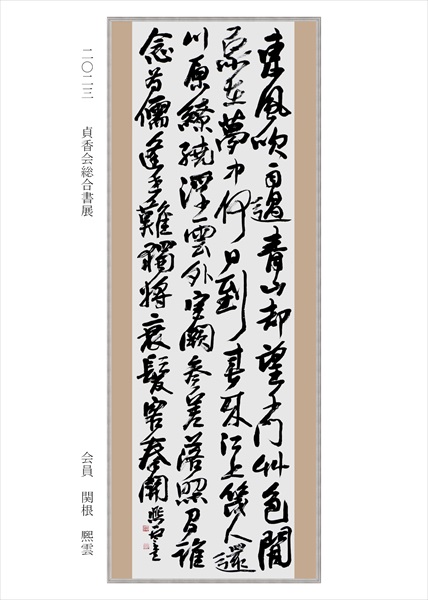 東風吹雨過青山却望千門艸色閒
家在夢中何日到春来江上幾人還
川原繚繞浮雲外宮闕参差落照間誰
念為儒逢世難獨将衰鬢客秦關 熙雲
二〇二三 貞香会総合書展
会員 関根 熙雲